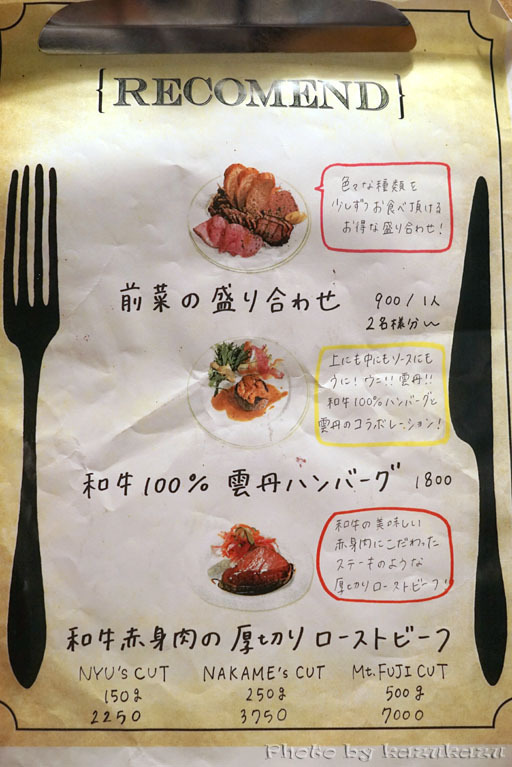 {RECOMEND}
色々な種類を
少しずつお食べ頂ける
お得な盛り合わせ!
前菜の盛り合わせ 900/1人
2名様分〜
上にも中にもソースにも
うに!ウニ!!雲丹!!
和牛100%ハンバーグと
雲丹のコラボレーション!
和牛100% 雲丹ハンバーグ 1800
和牛の美味しい
赤身肉にこだわった
ステーキのような
厚切りローストビーフ!!
和牛赤身肉の厚切りローストビーフ
NYU's CUT NAKAME's CUT Mt.FUJI CUT
150g 250g 500g
2250 3750 7000
Photo by kazukazu